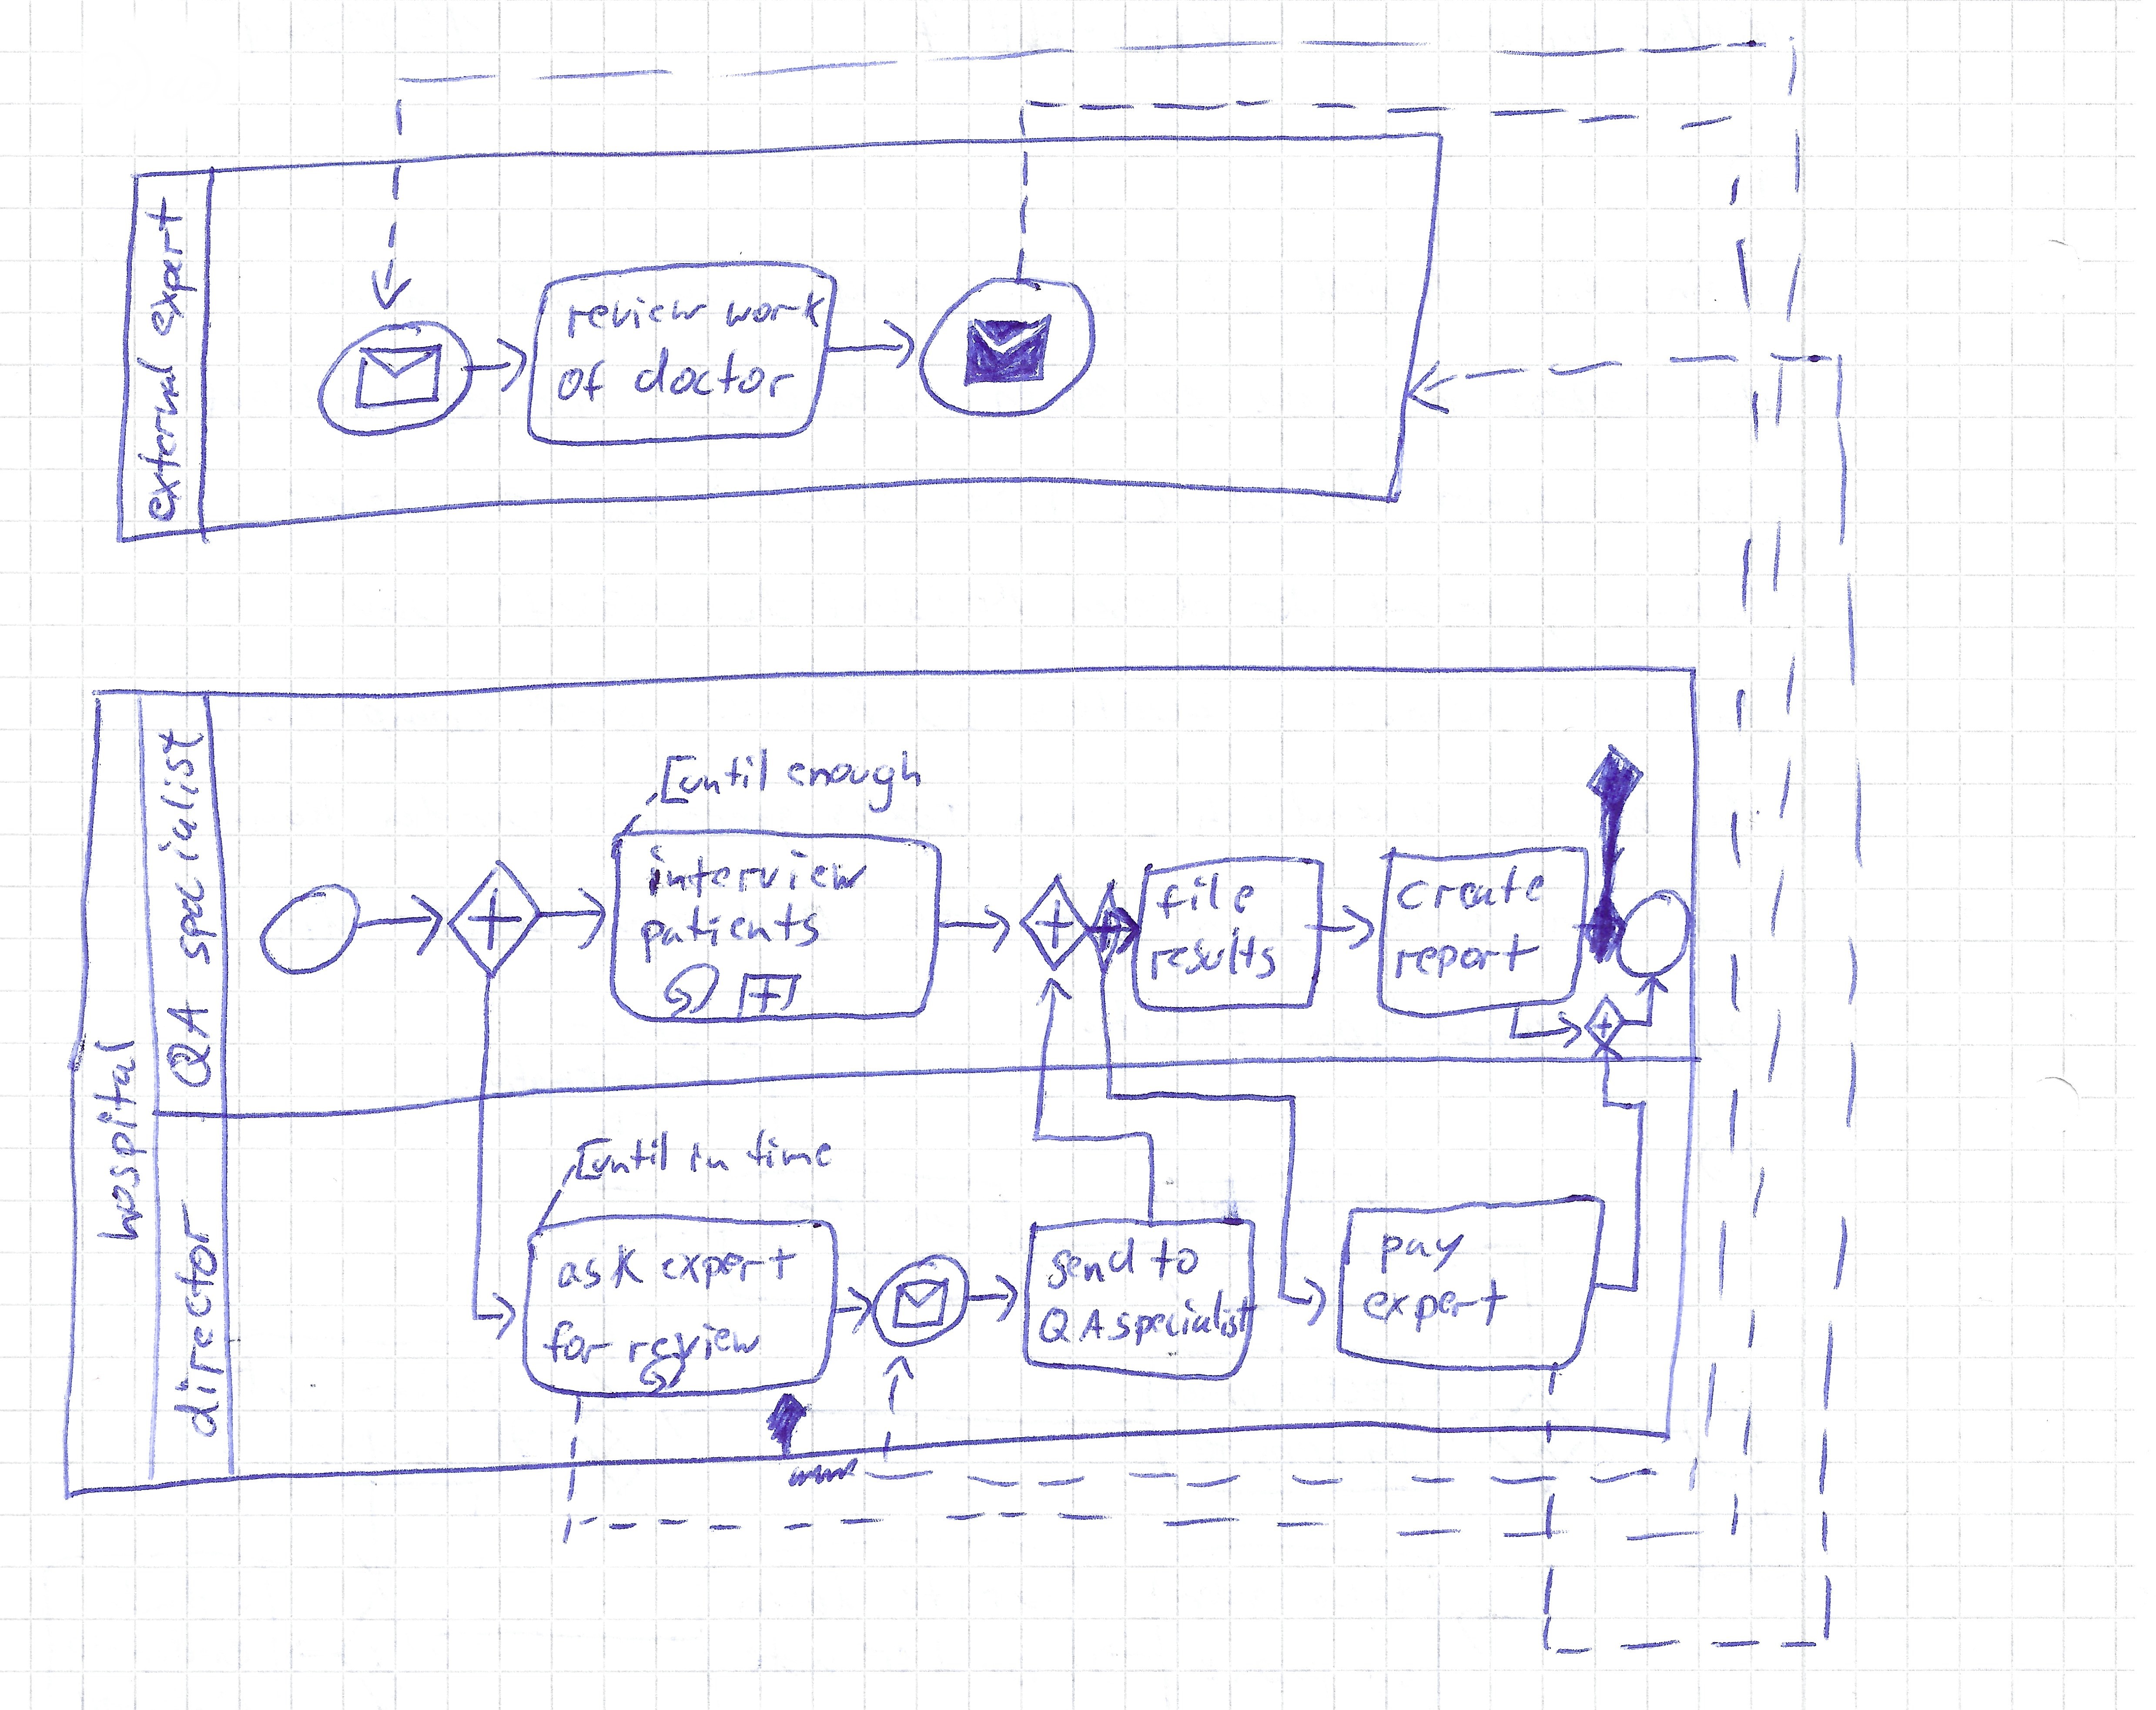 external expert
review work
of doctor
hospital
QA specialist
until enough
interview
patients
file
results
create
report
director
until in time
ask expert
for review
send to
QA specialist
pay
expert